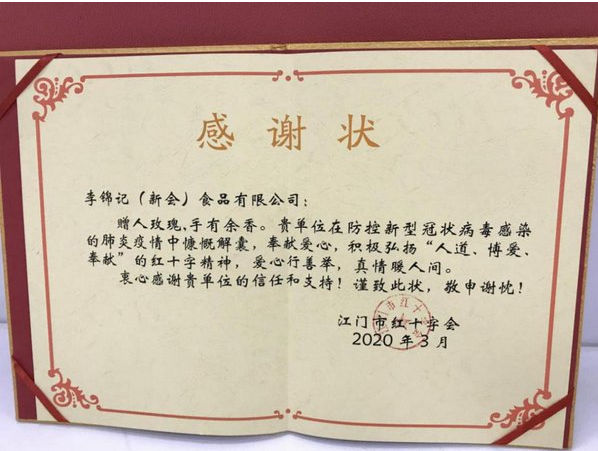 感谢状
李锦记（新会）食品有限公司：
赠人玫瑰，手有余香。贵单位在防控新型冠状病毒感染
的肺炎疫情中慷慨解囊，奉献爱心，积极弘扬“人道、博爱、
奉献”的红十字精神，爱心行善举，真情暖人间。
衷心感谢贵单位的信任和支持！谨致此状，敬申谢忱！
江门市红十字会
2020 年 3 月
江门市红十字会